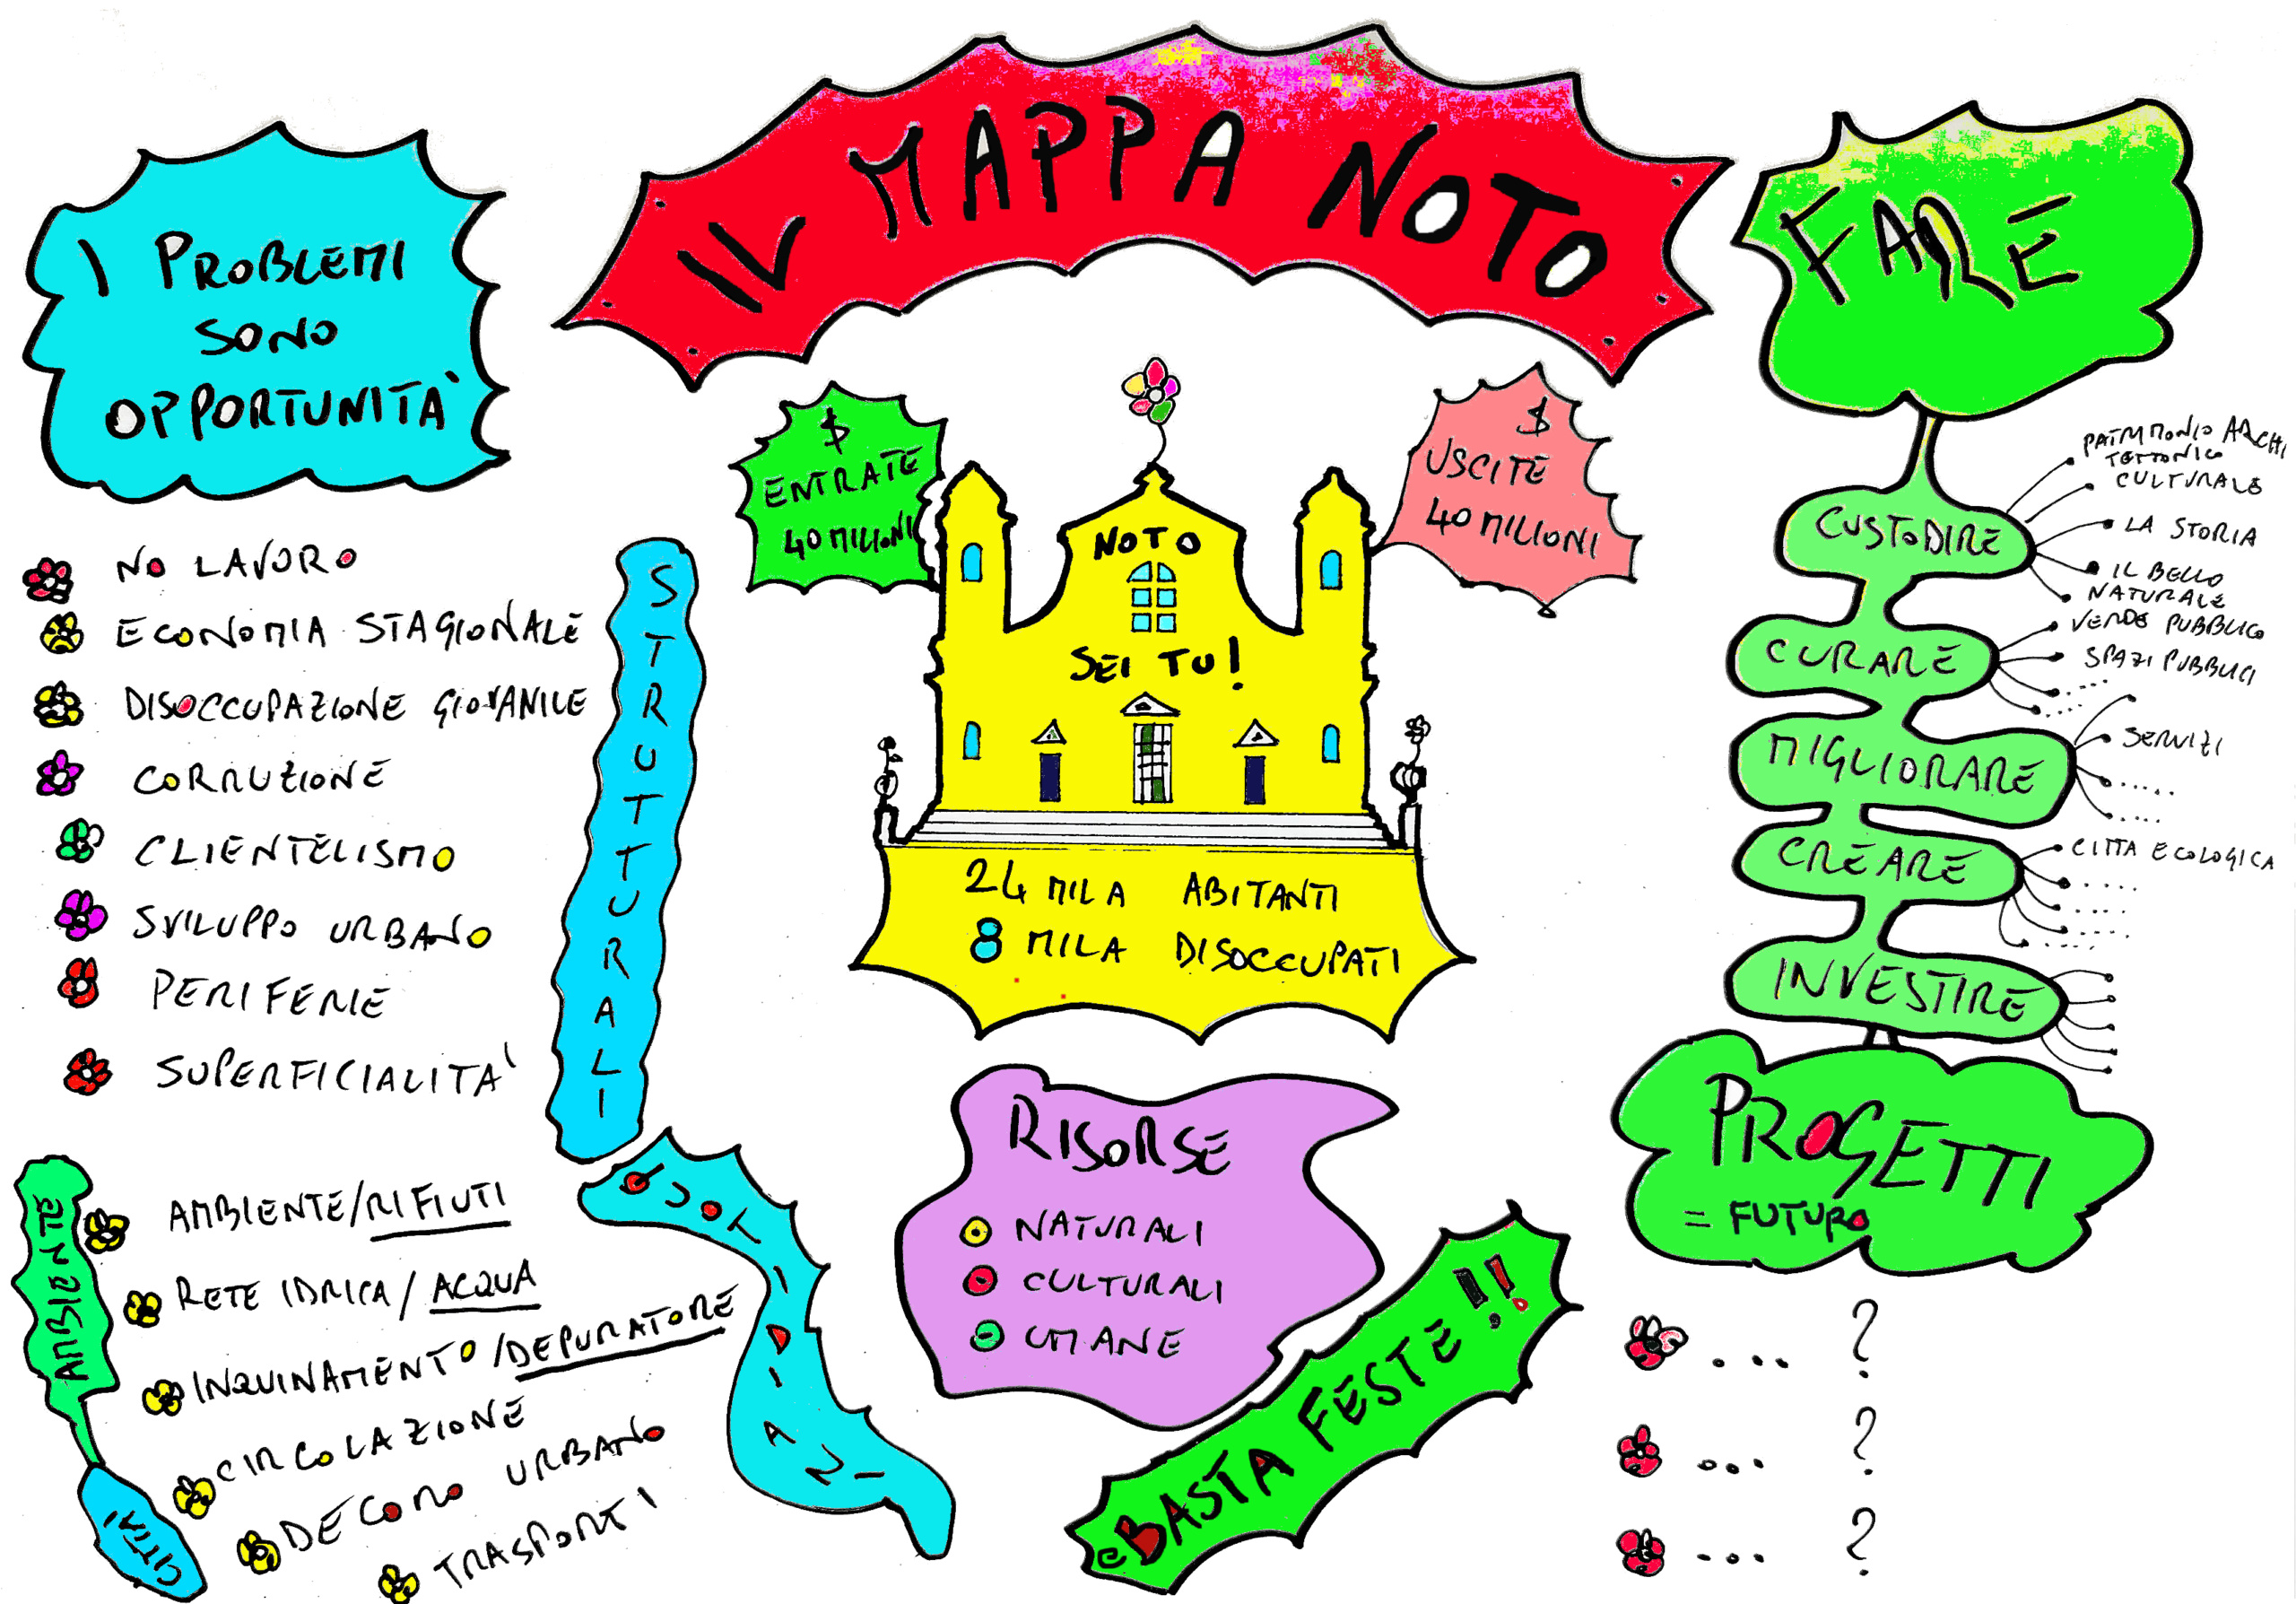 IL MAPPA NOTO
I PROBLEMI
SONO
OPPORTUNITÀ
NO LAVORO
ECONOMIA STAGIONALE
DISOCCUPAZIONE GIOVANILE
CORRUZIONE
CLIENTELISMO
SVILUPPO URBANO
PERIFERIE
SUPERFICIALITA'
STRUTTURALI
AMBIENTE
AMBIENTE/RIFIUTI
RETE IDRICA/ACQUA
INQUINAMENTO/DEPURATORE
CIRCOLAZIONE
DECORO URBANO
TRASPORTI
CITTA'
QUOTIDIANI
$
ENTRATE
40 MILIONI
$
USCITE
40 MILIONI
NOTO
SEI TU!
24 MILA ABITANTI
8 MILA DISOCCUPATI
RISORSE
NATURALI
CULTURALI
UMANE
BASTA FESTE!!
FARE
CUSTODIRE
PATRIMONIO ARCHI
TETTONICO
CULTURALE
LA STORIA
IL BELLO
NATURALE
CURARE
VERDE PUBBLICO
SPAZI PUBBLICI
......
......
MIGLIORARE
SERVIZI
.....
....
CREARE
CITTA ECOLOGICA
.....
.....
......
INVESTIRE
PROGETTI
= FUTURO
... ?
... ?
... ?